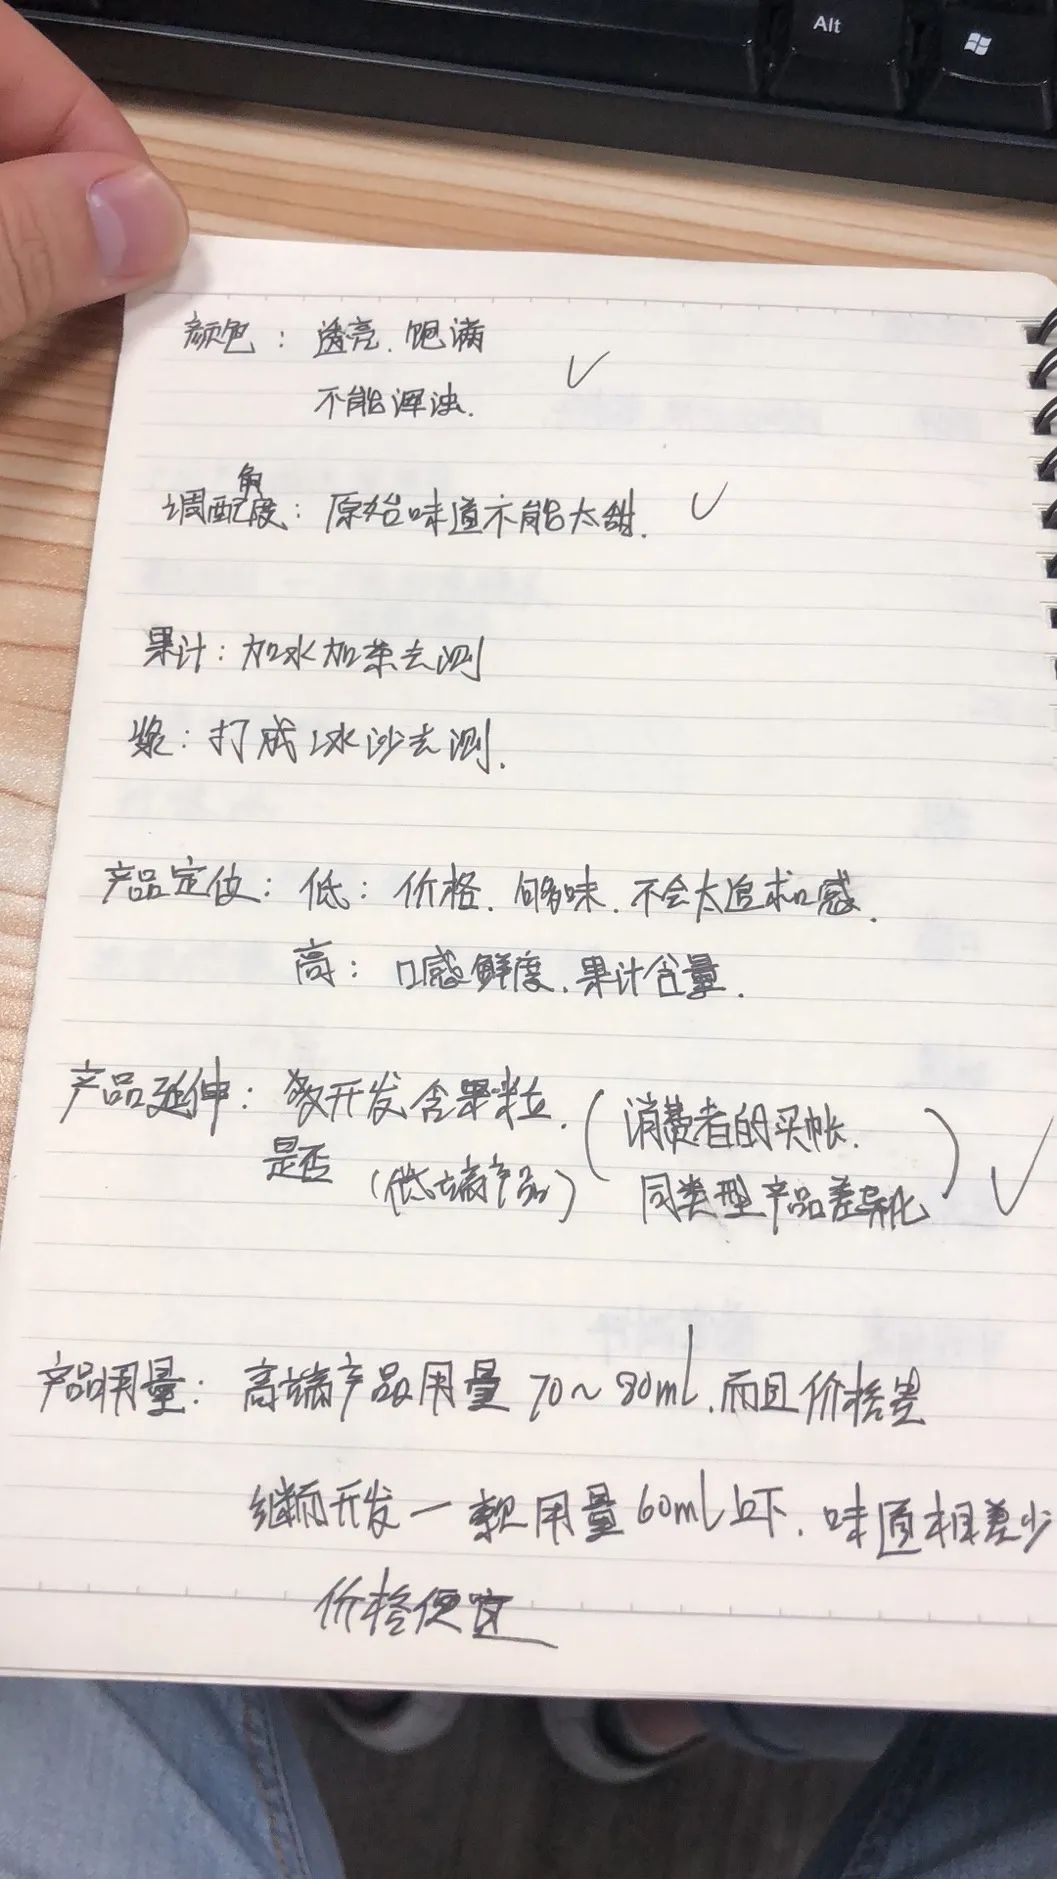 Alt
颜色：透亮、饱满
不能浑浊.
调配角度：原始味道不能太甜.
果汁：加水加茶去测
浆：打成冰沙去测.
产品定位：低：价格、够味、不会太追求口感.
高：口感鲜度、果汁含量.
产品延伸：是否开发含果粒.(消费者的买帐.
(低端产品) 同类型产品差异化)
产品用量：高端产品用量70~80ml.而且价格贵
继而开发一款用量60ml上下、味道相差少
价格便宜